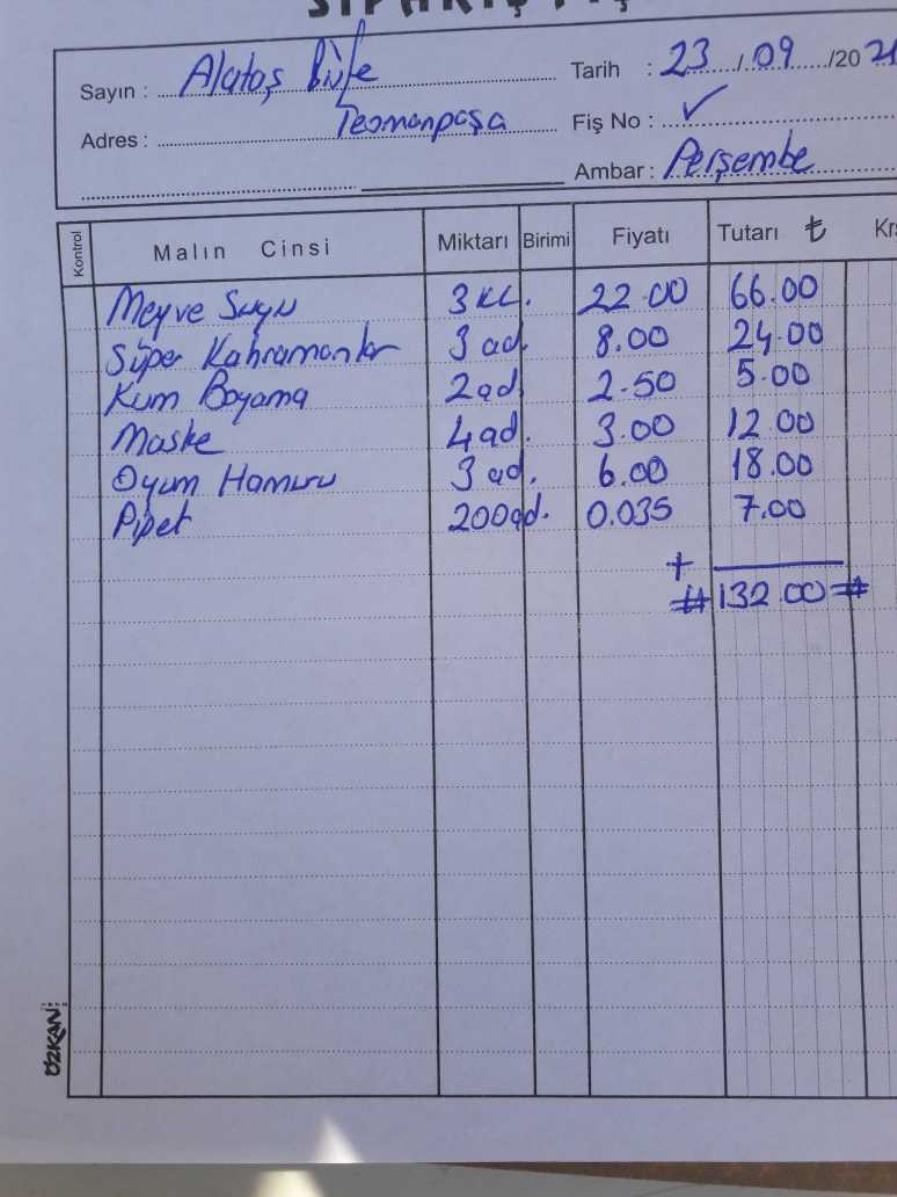 SİPARİŞ FİŞ
Sayın : Alataş Büfe Tarih : 23 / 09 /2021
Adres : Teomanpaşa Fiş No : ✓
Ambar : Perşembe
Kontrol Malın Cinsi Miktarı Birimi Fiyatı Tutarı ₺ Krş
Meyve Suyu 3 KL. 22.00 66.00
Süper Kahramanlar 3 ad. 8.00 24.00
Kum Boyama 2 ad. 2.50 5.00
Maske 4 ad. 3.00 12.00
Oyun Hamuru 3 ad. 6.00 18.00
Pipet 200 ad. 0.035 7.00
+
#132.00#
ÖZKAN